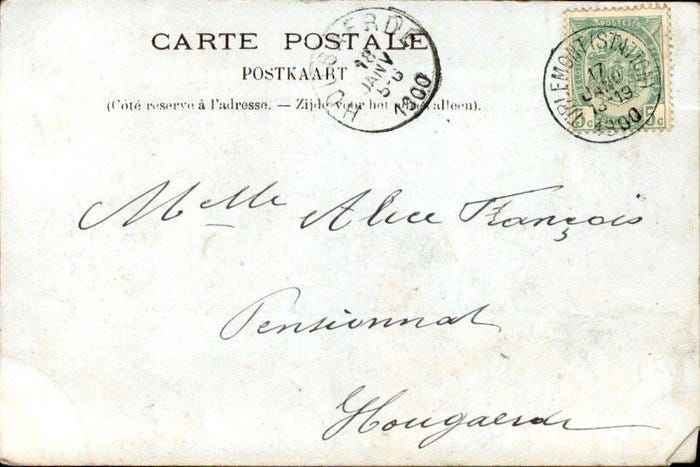 CARTE POSTALE
POSTKAART
(Côté réservé à l'adresse. — Zijde voor het adres alleen).
18
JANV
5-6
1900
TIRLEMONT (STATION)
17
JANV
18-19
1900
POSTES
5c 5c
Mlle Alice François
Pensionnat
Hougaerde